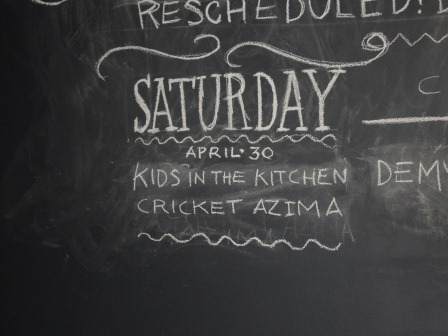 RESCHEDULED!
SATURDAY
APRIL • 30
KIDS IN THE KITCHEN
CRICKET AZIMA